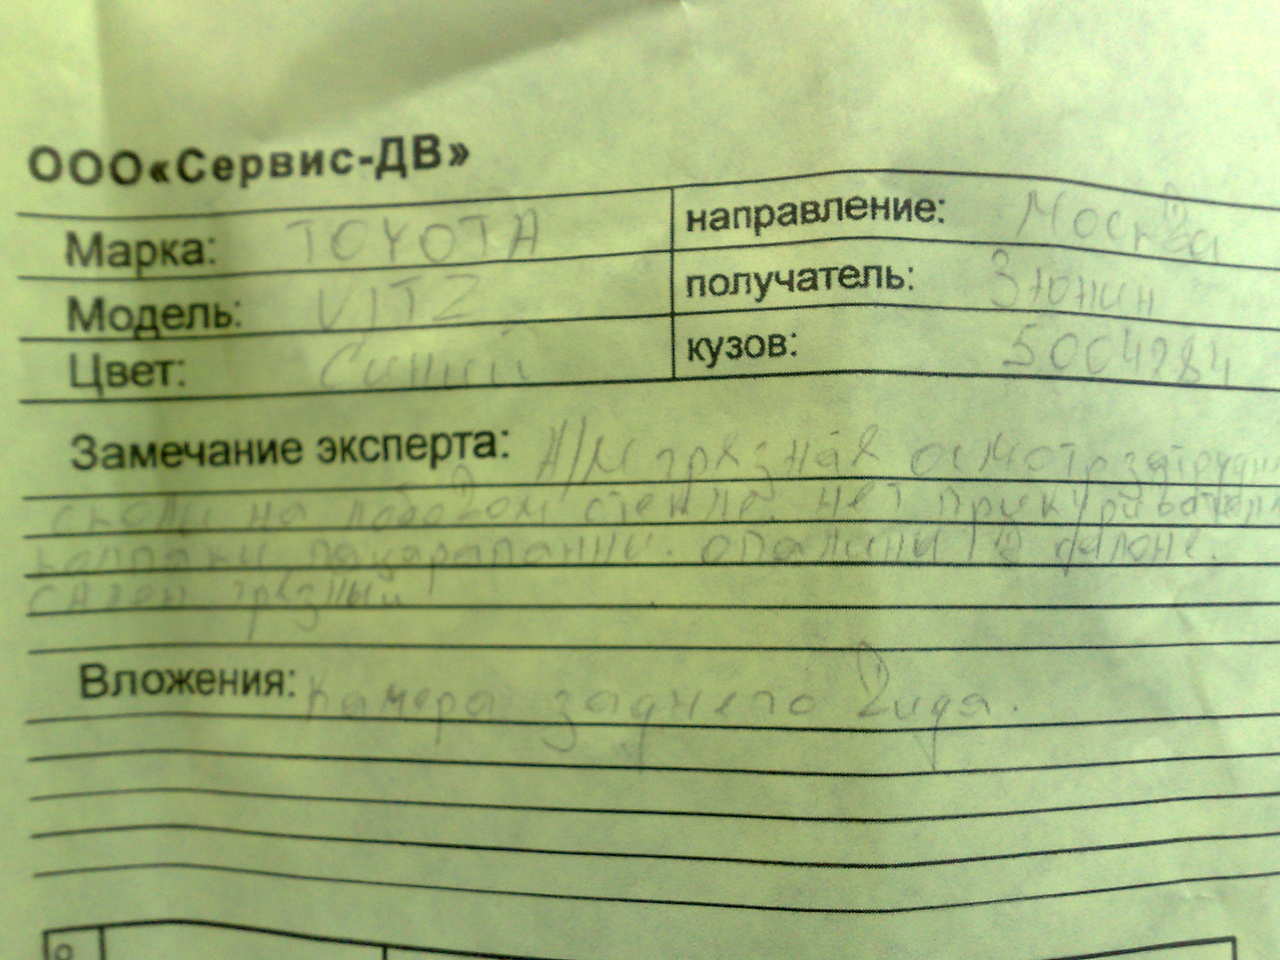 ООО«Сервис-ДВ»
Марка: TOYOTA направление: Москва
Модель: VITZ получатель: Зюнин
Цвет: Синий кузов: 5004284
Замечание эксперта: А/М грязная осмотр затрудн
сколы на лобовом стекле. нет прикуривателя
колпаки поцарапанны. опалины в салоне.
салон грязный
Вложения: камера заднего вида.